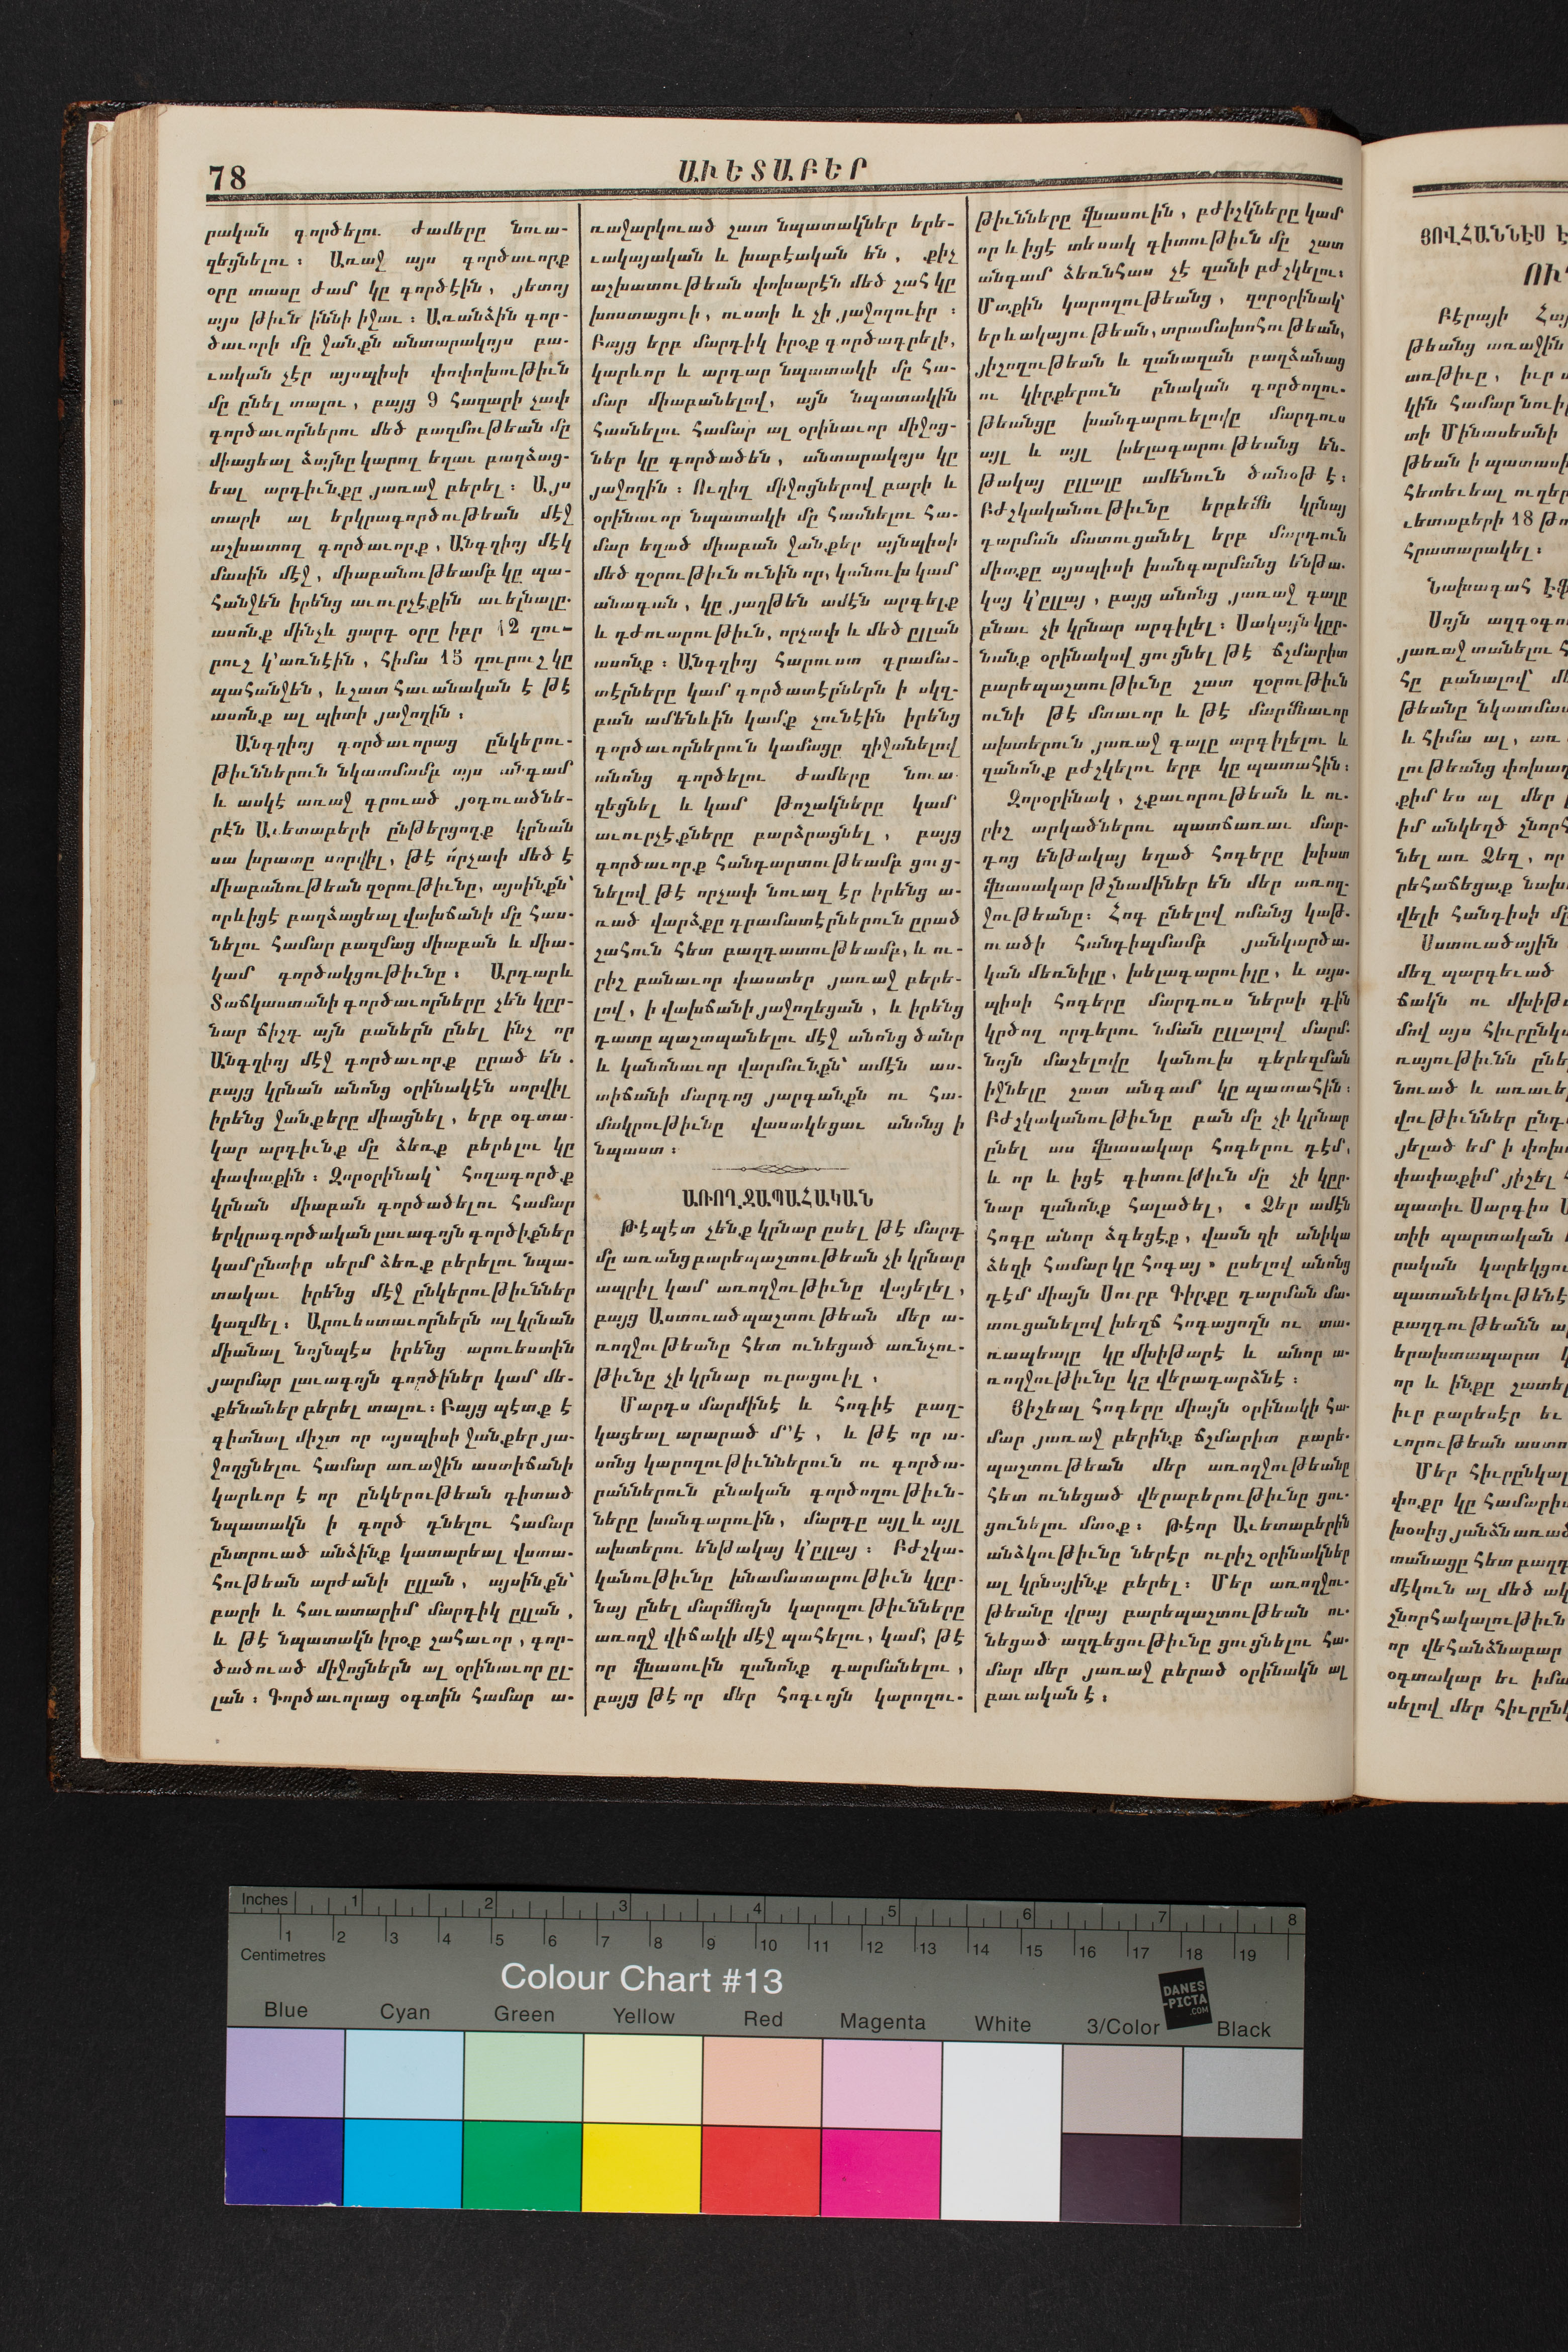 78
ԱՒԵՏԱԲԵՐ
րական գործելու ժամերը նուա-
զեցնելու։ Առաջ այս գործաւորք
օրը տասը ժամ կը գործէին, յետոյ
այս թիւն իննի իջաւ։ Առանձին գոր-
ծաւորի մը ջանքն անտարակոյս բա-
ւական չէր այսպիսի փոփոխութիւն
մը ընել տալու, բայց 9 հազարի չափ
գործաւորներու մեծ բազմութեան մը
միացեալ ձայնը կարող եղաւ բաղձաց-
եալ արդիւնքը յառաջ բերել։ Այս
տարի ալ երկրագործութեան մէջ
աշխատող գործաւորք, Անգղիոյ մէկ
մասին մէջ, միաբանութեամբ կը պա-
հանջեն իրենց աւուրչէքին աւելնալը.
ասոնք մինչև ցարդ օրը իբր 12 ղու-
րուշ կ՚առնէին, հիմա 15 ղուրուշ կը
պահանջեն, և շատ հաւանական է թէ
ասոնք ալ պիտի յաջողին։
Անգղիոյ գործաւորաց ընկերու-
թիւններուն նկատմամբ այս անգամ
և ասկէ առաջ գրուած յօդուածնե-
րէն Աւետաբերի ընթերցողք կրնան
սա խրատը սորվիլ, թէ ո՛րչափ մեծ է
միաբանութեան զօրութիւնը, այսինքն՝
որևիցէ բաղձացեալ վախճանի մը հաս-
նելու համար բազմաց միաբան և միա-
կամ գործակցութիւնը։ Արդարև
Տաճկաստանի գործաւորները չեն կըր-
նար ճիշդ այն բաներն ընել ինչ որ
Անգղիոյ մէջ գործաւորք ըրած են.
բայց կրնան անոնց օրինակէն սորվիլ
իրենց ջանքերը միացնել, երբ օգտա-
կար արդիւնք մը ձեռք բերելու կը
փափաքին։ Զորօրինակ՝ հողագործք
կրնան միաբան գործածելու համար
երկրագործական լաւագոյն գործիքներ
կամ ընտիր սերմ ձեռք բերելու նպա-
տակաւ իրենց մէջ ընկերութիւններ
կազմել։ Արուեստաւորներն ալ կրնան
միանալ նոյնպէս իրենց արուեստին
յարմար լաւագոյն գործիներ կամ մե-
քենաներ բերել տալու։ Բայց պէտք է
գիտնալ միշտ որ այսպիսի ջանքեր յա-
ջողցնելու համար առաջին աստիճանի
կարևոր է որ ընկերութեան դիտած
նպատակն ի գործ դնելու համար
ընտրուած անձինք կատարեալ վստա-
հութեան արժանի ըլլան, այսինքն՝
բարի և հաւատարիմ մարդիկ ըլլան,
և թէ նպատակն իրօք շահաւոր, գոր-
ծածուած միջոցներն ալ օրինաւոր ըլ-
լան։ Գործաւորաց օգտին համար ա-
ռաջարկուած շատ նպատակներ երե-
ւակայական և խաբէական են, քիչ
աշխատութեան փոխարէն մեծ շահ կը
խոստացուի, ուստի և չի յաջողուիր։
Բայց երբ մարդիկ իրօք գործադրելի,
կարևոր և արդար նպատակի մը հա-
մար միաբանելով, այն նպատակին
հասնելու համար ալ օրինաւոր միջոց-
ներ կը գործածեն, անտարակոյս կը
յաջողին։ Ուղիղ միջոցներով բարի և
օրինաւոր նպատակի մը հասնելու հա-
մար եղած միաբան ջանքեր այնպիսի
մեծ զօրութիւն ունին որ, կանուխ կամ
անագան, կը յաղթեն ամէն արգելք
և դժուարութիւն, որչափ և մեծ ըլլան
ասոնք։ Անգղիոյ հարուստ դրամա-
տէրները կամ գործատէրներն ի սկզ-
բան ամենևին կամք չունէին իրենց
գործաւորներուն կամացը զիջանելով
անոնց գործելու ժամերը նուա-
զեցնել և կամ թոշակները կամ
աւուրչէքները բարձրացնել, բայց
գործաւորք հանդարտութեամբ ցուց-
նելով թէ որչափ նուազ էր իրենց ա-
ռած վարձքը դրամատէրներուն ըրած
շահուն հետ բաղդատութեամբ, և ու-
րիշ բանաւոր փաստեր յառաջ բերե-
լով, ի վախճանի յաջողեցան, և իրենց
դատը պաշտպանելու մէջ անոնց ծանր
և կանոնաւոր վարմունքն՝ ամէն աս-
տիճանի մարդոց յարգանքն ու հա-
մակրութիւնը վաստկեցաւ անոնց ի
նպաստ։
ԱՌՈՂՋԱՊԱՀԱԿԱՆ
Թէպէտ չենք կրնար ըսել թէ մարդ
մը առանց բարեպաշտութեան չի կրնար
ապրիլ կամ առողջութիւնը վայելել,
բայց Աստուածպաշտութեան մեր ա-
ռողջութեանը հետ ունեցած առնչու-
թիւնը չի կրնար ուրացուիլ,
Մարդս մարմինէ և հոգիէ բաղ-
կացեալ արարած մ՚է, և թէ որ ա-
սոնց կարողութիւններուն ու գործա-
րաններուն բնական գործողութիւն-
ները խանգարուին, մարդը այլ և այլ
ախտերու ենթակայ կ՚ըլլայ։ Բժշկա-
կանութիւնը խնամատարութիւն կըր-
նայ ընել մարմնոյն կարողութիւնները
առողջ վիճակի մէջ պահելու, կամ, թէ
որ վնասուին զանոնք դարմանելու,
բայց թէ որ մեր հոգւոյն կարողու-
թիւնները վնասուին, բժիշկները կամ
որ և իցէ տեսակ գիտութիւն մը շատ
անգամ ձեռնհաս չէ զանի բժշկելու։
Մտքին կարողութեանց, զորօրինակ՝
երևակայութեան, տրամախոհութեան,
յիշողութեան և զանազան բաղձանաց
ու կիրքերուն բնական գործողու-
թեանցը խանգարուելովը մարդուս
այլ և այլ խելագարութեանց են-
թակայ ըլլալը ամենուն ծանօթ է։
Բժշկականութիւնը երբեմն կրնայ
դարման մատուցանել երբ մարդուն
միտքը այսպիսի խանգարմանց ենթա-
կայ կ՚ըլլայ, բայց անոնց յառաջ գալը
բնաւ չի կրնար արգիլել։ Սակայն կըր-
նանք օրինակով ցուցնել թէ ճշմարիտ
բարեպաշտութիւնը շատ զօրութիւն
ունի թէ մտաւոր և թէ մարմնաւոր
ախտերուն յառաջ գալը արգիլելու և
զանոնք բժշկելու երբ կը պատահին։
Զորօրինակ, չքաւորութեան և ու-
րիշ արկածներու պատճառաւ մար-
դոց ենթակայ եղած հոգերը խիստ
վնասակար թշնամիներ են մեր առող-
ջութեանը։ Հոգ ընելով ոմանց կաթ-
ուածի հանդիպմամբ յանկարծա-
կան մեռնիլը, խելագարուիլը, և այս-
պիսի հոգերը մարդուս ներսի դին
կրծող որդերու նման ըլլալով մարմ-
նոյն մաշելովը կանուխ գերեզման
իջնելը շատ անգամ կը պատահին։
Բժշկականութիւնը բան մը չի կրնար
ընել աս վնասակար հոգերու դէմ,
և որ և իցէ գիտութիւն մը չի կըր-
նար զանոնք հալածել, « Ձեր ամէն
հոգը անոր ձգեցէք, վասն զի անիկա
ձեզի համար կը հոգայ » ըսելով անոնց
դէմ միայն Սուրբ Գիրքը դարման մա-
տուցանելով խեղճ հոգացողն ու տա-
ռապեալը կը մխիթարէ և անոր ա-
ռողջութիւնը կը վերադարձնէ։
Յիշեալ հոգերը միայն օրինակի հա-
մար յառաջ բերինք ճշմարիտ բարե-
պաշտութեան մեր առողջութեանը
հետ ունեցած վերաբերութիւնը ցու-
ցունելու մտօք։ Թէոր Աւետաբերին
անձկութիւնը ներէր ուրիշ օրինակներ
ալ կրնայինք բերել։ Մեր առողջու-
թեանը վրայ բարեպաշտութեան ու-
նեցած ազդեցութիւնը ցուցնելու հա-
մար մեր յառաջ բերած օրինակն ալ
բաւական է։
ՅՈՎՀԱՆՆԷՍ
Բէրայի
թեանց առաջին
առթիւը, իւր
կին համար
տի Մինասեանի
թեան ի
հետեւեալ
ւետաբերի 18
հրատարակել։
Նախագահ
Սոյն
յառաջ տանելու
հը բանալով՝
թեանը
և հիմա ալ,
լութեանց
քիմ ես ալ մեր
իմ անկեղծ
նել առ Ձեզ, որ
րեհաճեցաք
վելի հանդիսի
Աստուածային
մեղ պարգեւած
ճակն ու
մով այս
ռայութիւնն
նուած և
վութիւններ
յելած եմ ի
փափաքիմ յիշել
պատիւ Սարգիս
տիի պարտական
րական
պատանեկութենէ
բաղդութեանն
երախտապարտ
որ և ինքը
իւր բարեսէր եւ
ւորութեան
Մեր
փոքր կը
խօսից
տանացը հետ
մէկուն ալ մեծ
շնորհակալութիւն
որ վեհանձնաբար
օգտակար եւ
սելով մեր
Inches 1 2 3 4 5 6 7 8
1 2 3 4 5 6 7 8 9 10 11 12 13 14 15 16 17 18 19
Centimetres
Colour Chart #13
DANES
-PICTA
.COM
Blue Cyan Green Yellow Red Magenta White 3/Color Black